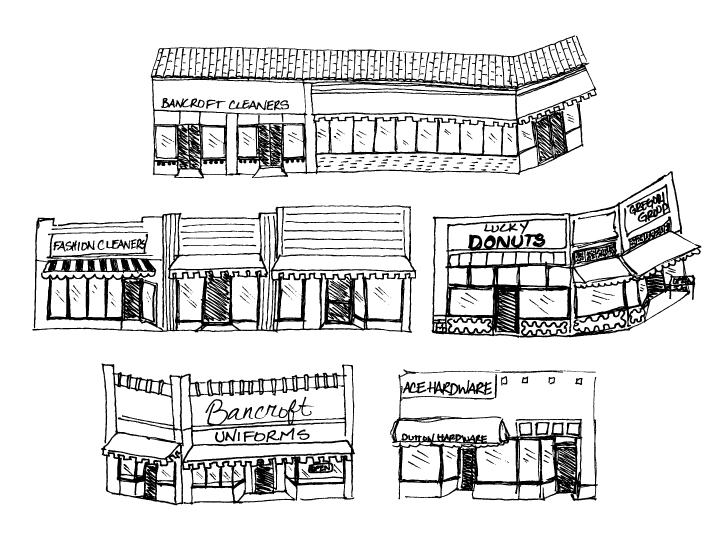 BANCROFT CLEANERS
FASHION CLEANERS
LUCKY
DONUTS
GREGORY
GROUP
Bancroft
UNIFORMS
OPEN
ACE HARDWARE
DUTTON HARDWARE